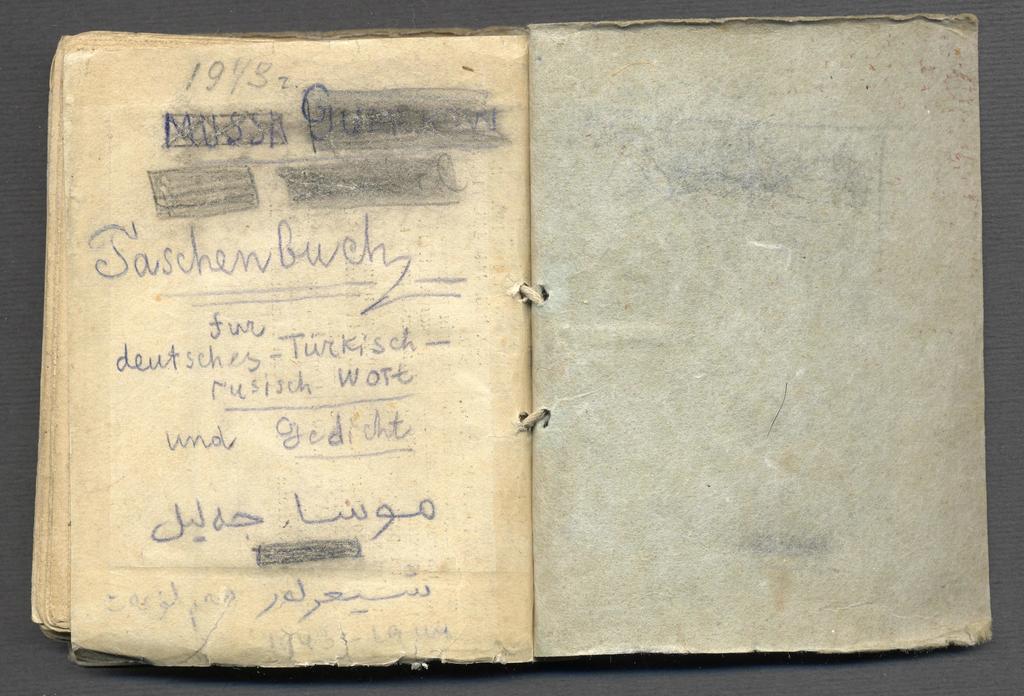 1943 г.
MUSSA
Taschenbuch
fur
deutsches-Türkisch-
rusisch-Wort
und Gedicht
موسا جەلیل
شیعرلەر
1943-1944